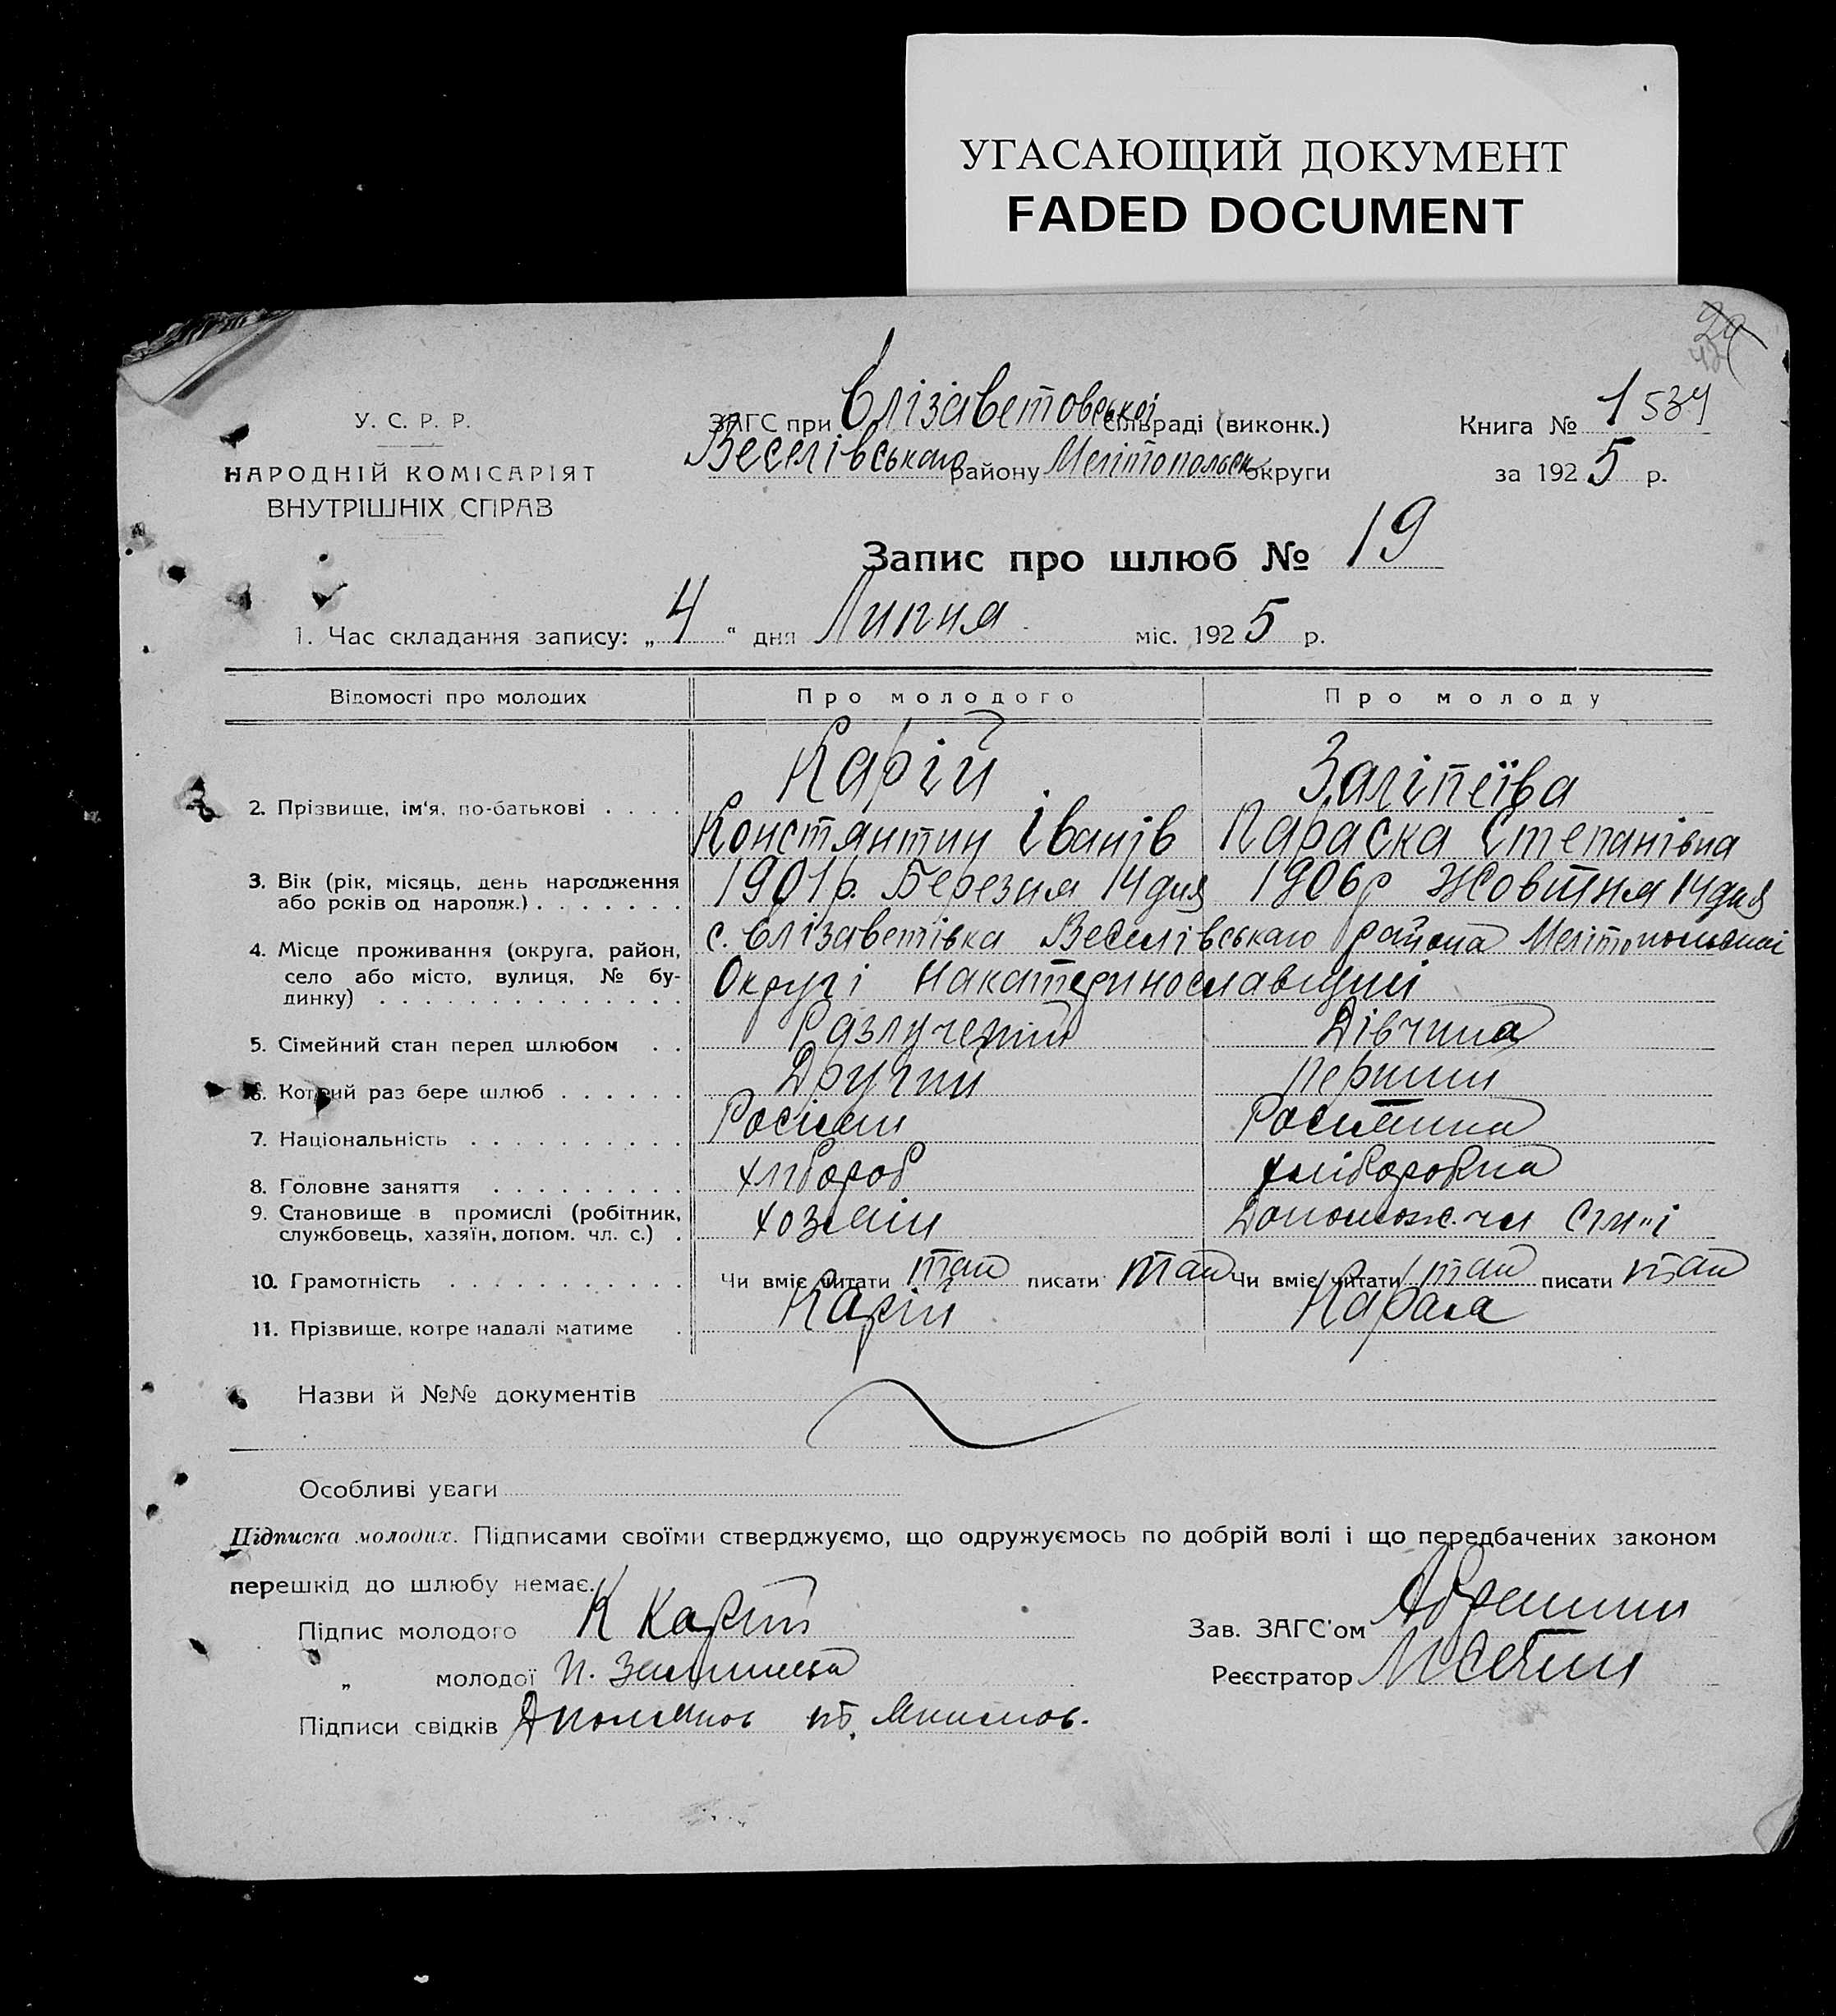 УГАСАЮЩИЙ ДОКУМЕНТ
FADED DOCUMENT
У. С. Р. Р.
НАРОДНІЙ КОМІСАРІЯТ
ВНУТРІШНІХ СПРАВ
ЗАГС при Єлізаветовської сільраді (виконк.)
Веселівського району Мелітопольск округи
Книга № 1 534
за 1925 р.
Запис про шлюб № 19
1. Час складання запису: „4“ дня Липня міс. 1925 р.
Відомості про молодих Про молодого Про молоду
Карій Заліпеїва
2. Прізвище, ім'я, по-батькові . . . . Константин Іванів Параска Степанівна
3. Вік (рік, місяць, день народження або років од народж.) . . . . . . . 1901 р. Березня 14 дня 1906 р Жовтня 14 дня
4. Місце проживання (округа, район, село або місто, вулиця, № будинку) . . . . . . . . . . . . . . с. Єлізаветівка Веселівського района Мелітопольської
Округі Накатеринославщині
5. Сімейний стан перед шлюбом . . Разлучений Дівчина
6. Котрий раз бере шлюб . . . . . . Другий Перший
7. Національність . . . . . . . . . . Росіян Росиянка
8. Головне заняття . . . . . . . . . хлібороб хліборобка
9. Становище в промислі (робітник, службовець, хазяїн, допом. чл. с.) . хозяїн Допомож. чл Сім'ї
10. Грамотність . . . . . . . . . . . Чи вміє читати так писати так Чи вміє читати так писати так
11. Прізвище, котре надалі матиме . Карій Карая
Назви й №№ документів
Особливі уваги
Підписка молодих. Підписами своїми стверджуємо, що одружуємось по добрій волі і що передбачених законом
перешкід до шлюбу немає.
Підпис молодого К Карій
Зав. ЗАГС'ом
„ молодої П.
Реєстратор
Підписи свідків